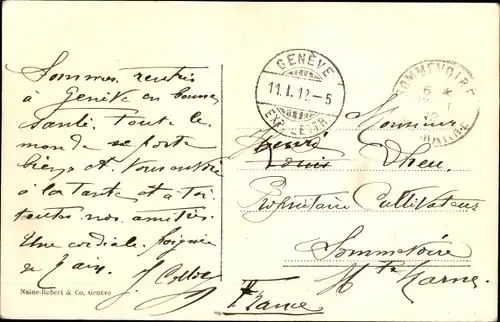 Sommes rentrés
à Genève en bonne
santé. Toute le
monde se porte
bien et
à la tante et à toi
toutes nos amitiés.
Une cordiale poignée
de main.
Naine-Robert & Co, Genève
GENÈVE
11.I.12-5
EXP. LETTR.
SOMMEVOIRE
6 *
12
MARNE
Monsieur
Henri
Louis
Dheu
Propriétaire Cultivateur
Sommevoire
Hte Marne
France